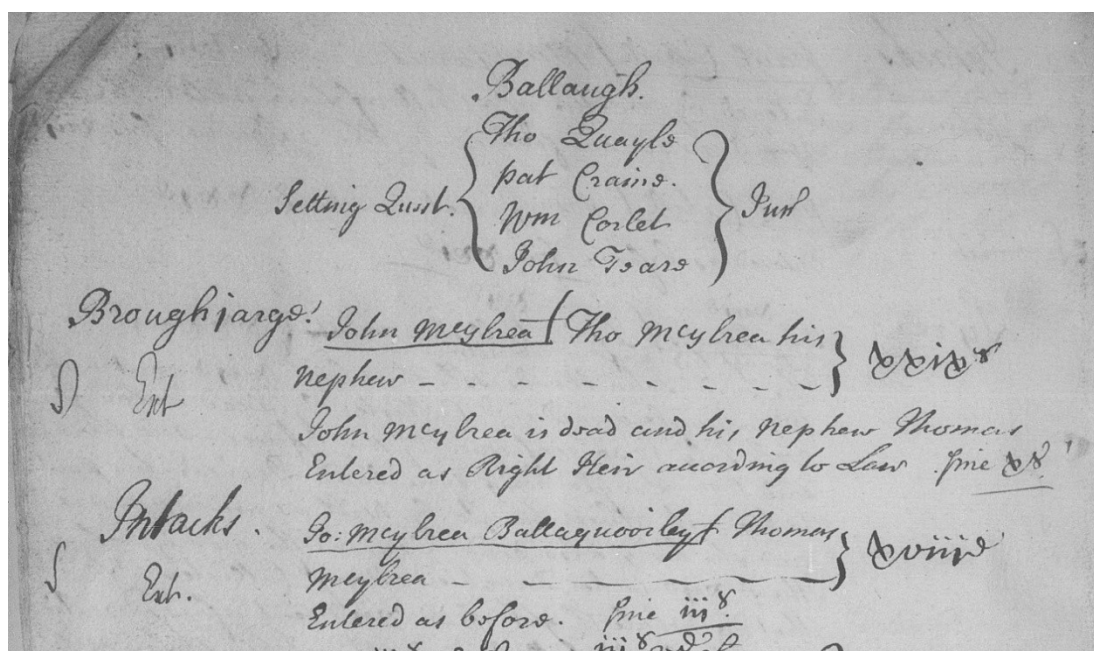 Ballaugh.
Tho Quayle
pat Craine.
Setting Quest.
Wm Corlet
Jur
John Teare
Broughjarge.
John Mcylrea Tho Mcylrea his
nephew - - - - - - - - xxixs
Ent
John Mcylrea is dead and his Nephew Thomas
Entered as Right Heir according to Law. fine xs.
Intacks.
Jo: Mcylrea Ballaquoirley Thomas
Mcylrea - xviijd
Ent.
Entered as before. fine iijs.